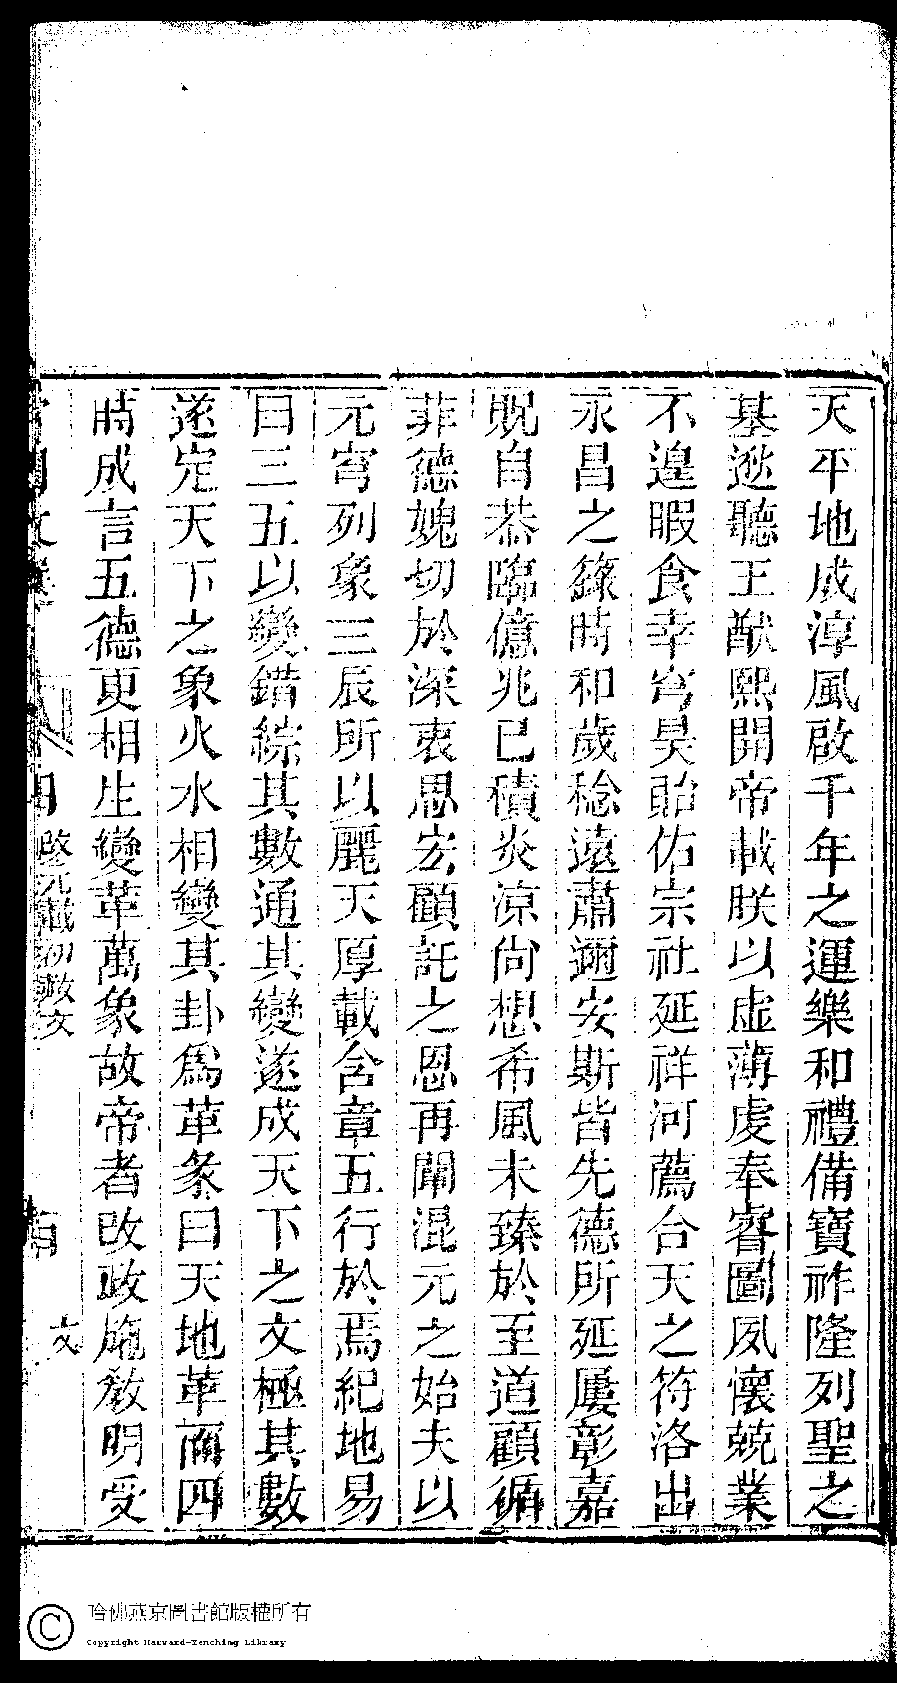 天平地成淳風啟千年之運樂和禮備寶祚隆列聖之
基逖聽王猷熙開帝載朕以虛薄虔奉睿圖夙懷兢業
不遑暇食幸穹昊貽佑宗社延祥河薦合天之符洛出
永昌之籙時和歲稔遠肅邇安斯皆先德所延屢彰嘉
貺自恭臨億兆已積炎涼尙想希風未臻於至道顧循
菲德媿切於深衷思宏顧託之恩再闡混元之始夫以
元穹列象三辰所以麗天厚載含章五行於焉紀地易
曰三五以變錯綜其數通其變遂成天下之文極其數
遂定天下之象火水相變其卦爲革彖曰天地革而四
時成言五德更相生變革萬象故帝者改政施敎明受
文
哈佛燕京圖書館版權所有
Copyright Harvard-Yenching Library